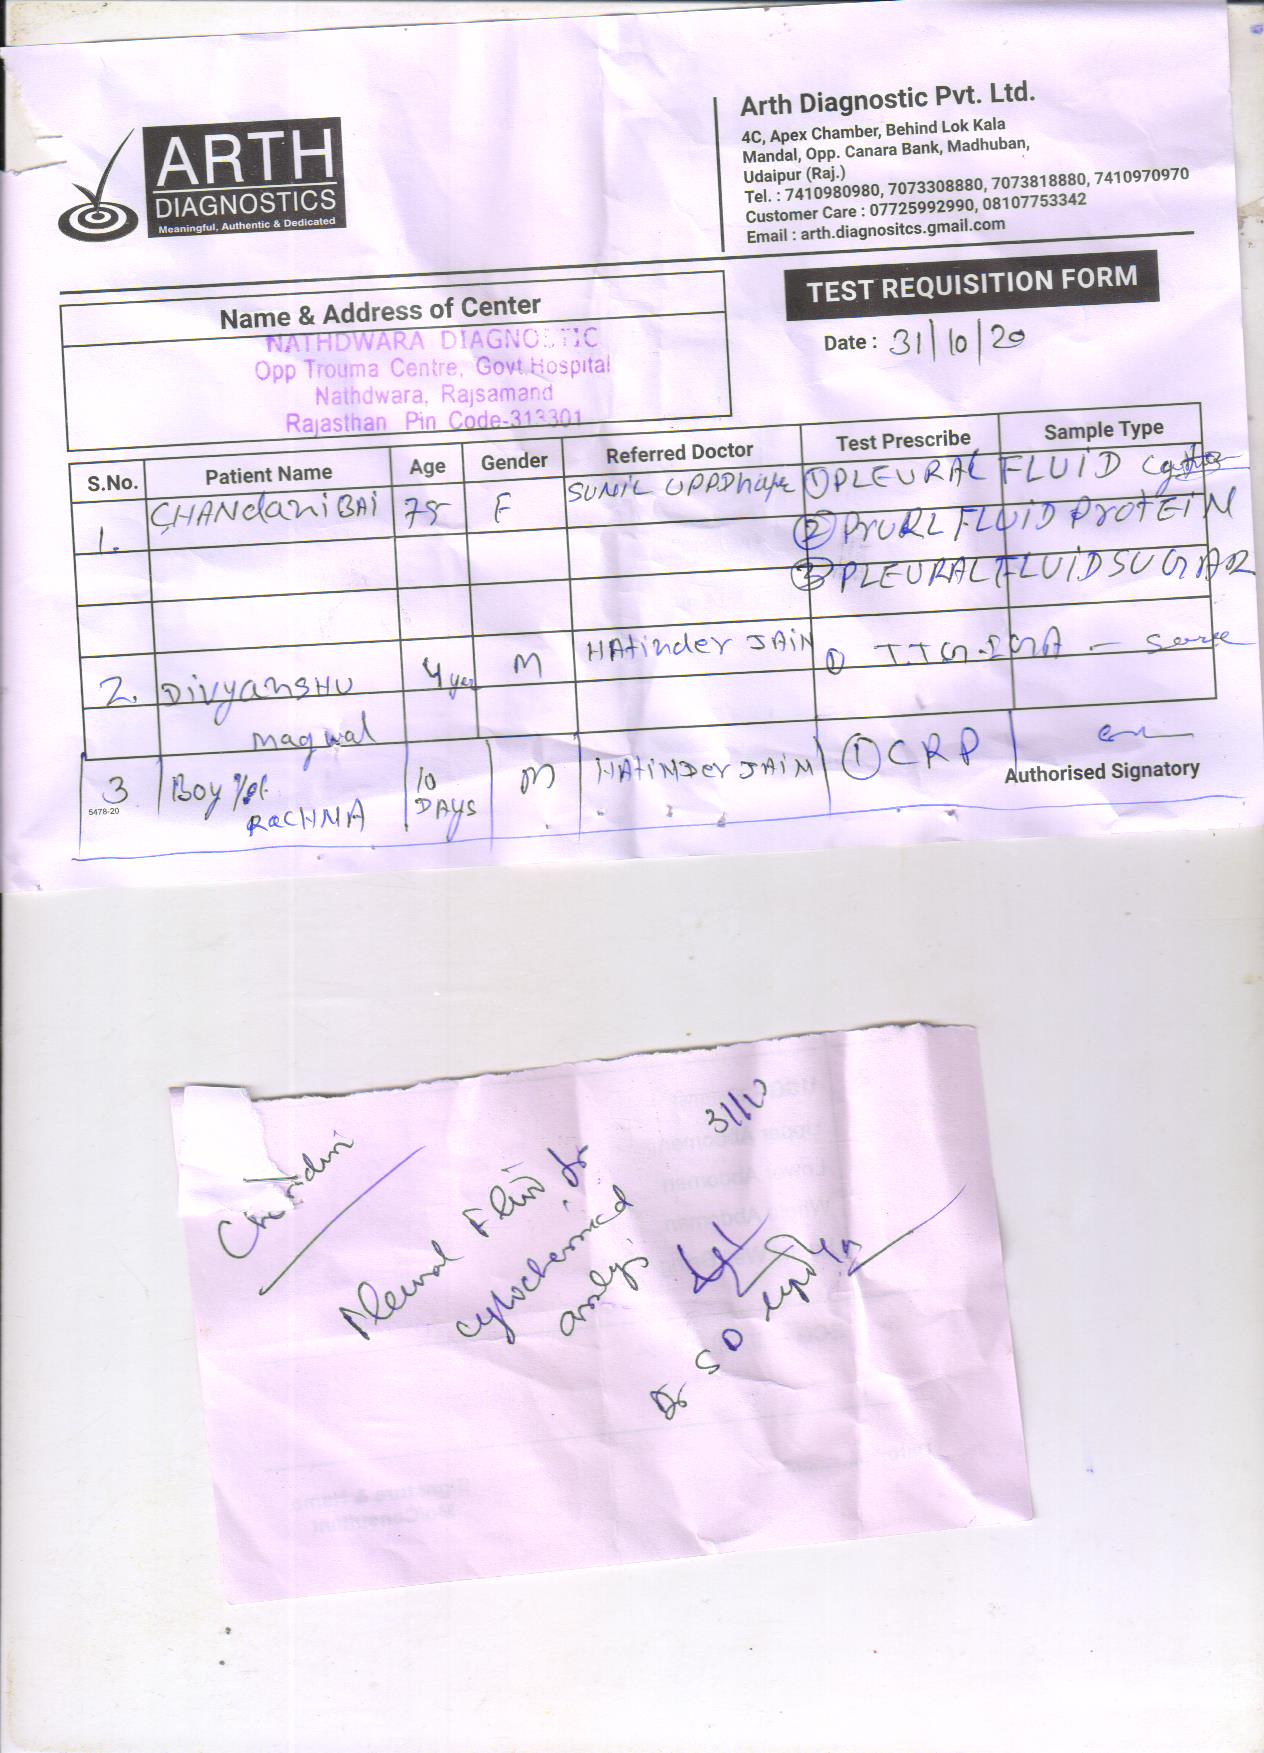 ARTH
DIAGNOSTICS
Meaningful, Authentic & Dedicated
Arth Diagnostic Pvt. Ltd.
4C, Apex Chamber, Behind Lok Kala
Mandal, Opp. Canara Bank, Madhuban,
Udaipur (Raj.)
Tel. : 7410980980, 7073308880, 7073818880, 7410970970
Customer Care : 07725992990, 08107753342
Email : arth.diagnositcs.gmail.com
TEST REQUISITION FORM
Date : 31/10/20
Name & Address of Center
NATHDWARA DIAGNOSTIC
Opp Trouma Centre, Govt Hospital
Nathdwara, Rajsamand
Rajasthan Pin Code-313301
S.No. Patient Name Age Gender Referred Doctor Test Prescribe Sample Type
1. CHANdaniBAI 75 F SUNIL UPPDhaye ① PLEURAL FLUID
② PrURL FLUID ProtEiN
③ PLEURAL FLUiD SUGAR
2. Divyanshu 4 yer M HAtinder JAiN ①
magwal
3 Boy RACHNA 10 DAYS M HAtiNDer JAiM ① CRP
Authorised Signatory
5478-20
31/10
Pleural Fluid for
cytochemical
analysis
Dr S D